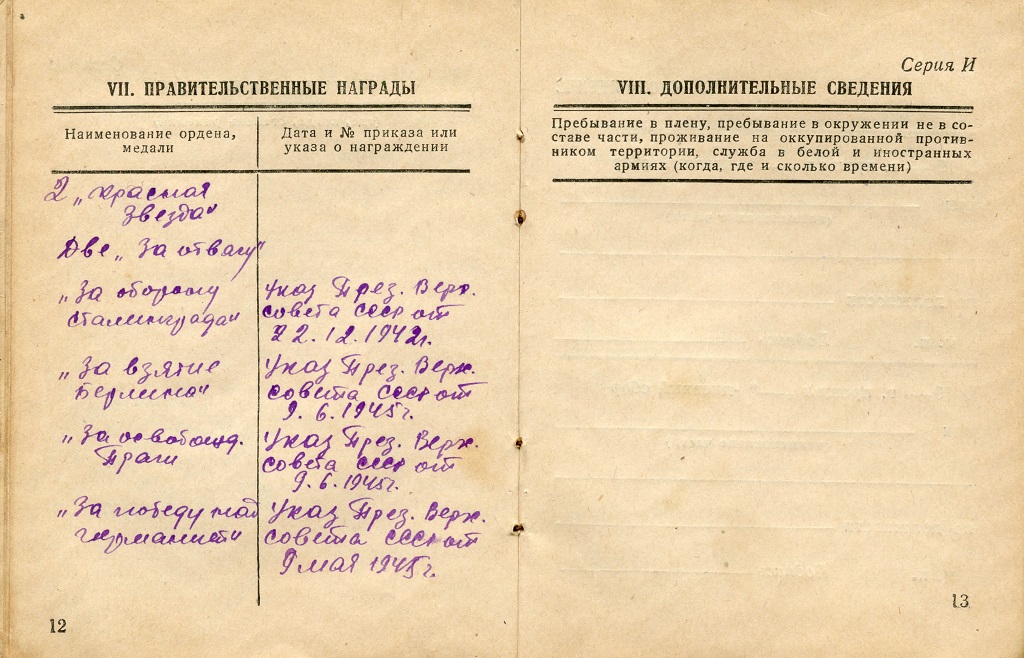 VII. ПРАВИТЕЛЬСТВЕННЫЕ НАГРАДЫ
Наименование ордена,
медали
Дата и № приказа или
указа о награждении
2 „Красная
Звезда“
Две „За отвагу“
„За оборону
Сталинграда“
Указ През. Верх.
совета СССР от
22.12.1942г.
„За взятие
Берлина“
Указ През. Верх.
совета СССР от
9.6.1945г.
„За освобожд.
Праги
Указ През. Верх.
совета СССР от
9.6.1945г.
„За победу над
Германией“
Указ През. Верх.
совета СССР от
9 мая 1945г.
12
Серия И
VIII. ДОПОЛНИТЕЛЬНЫЕ СВЕДЕНИЯ
Пребывание в плену, пребывание в окружении не в со-
ставе части, проживание на оккупированной против-
ником территории, служба в белой и иностранных
армиях (когда, где и сколько времени)
13